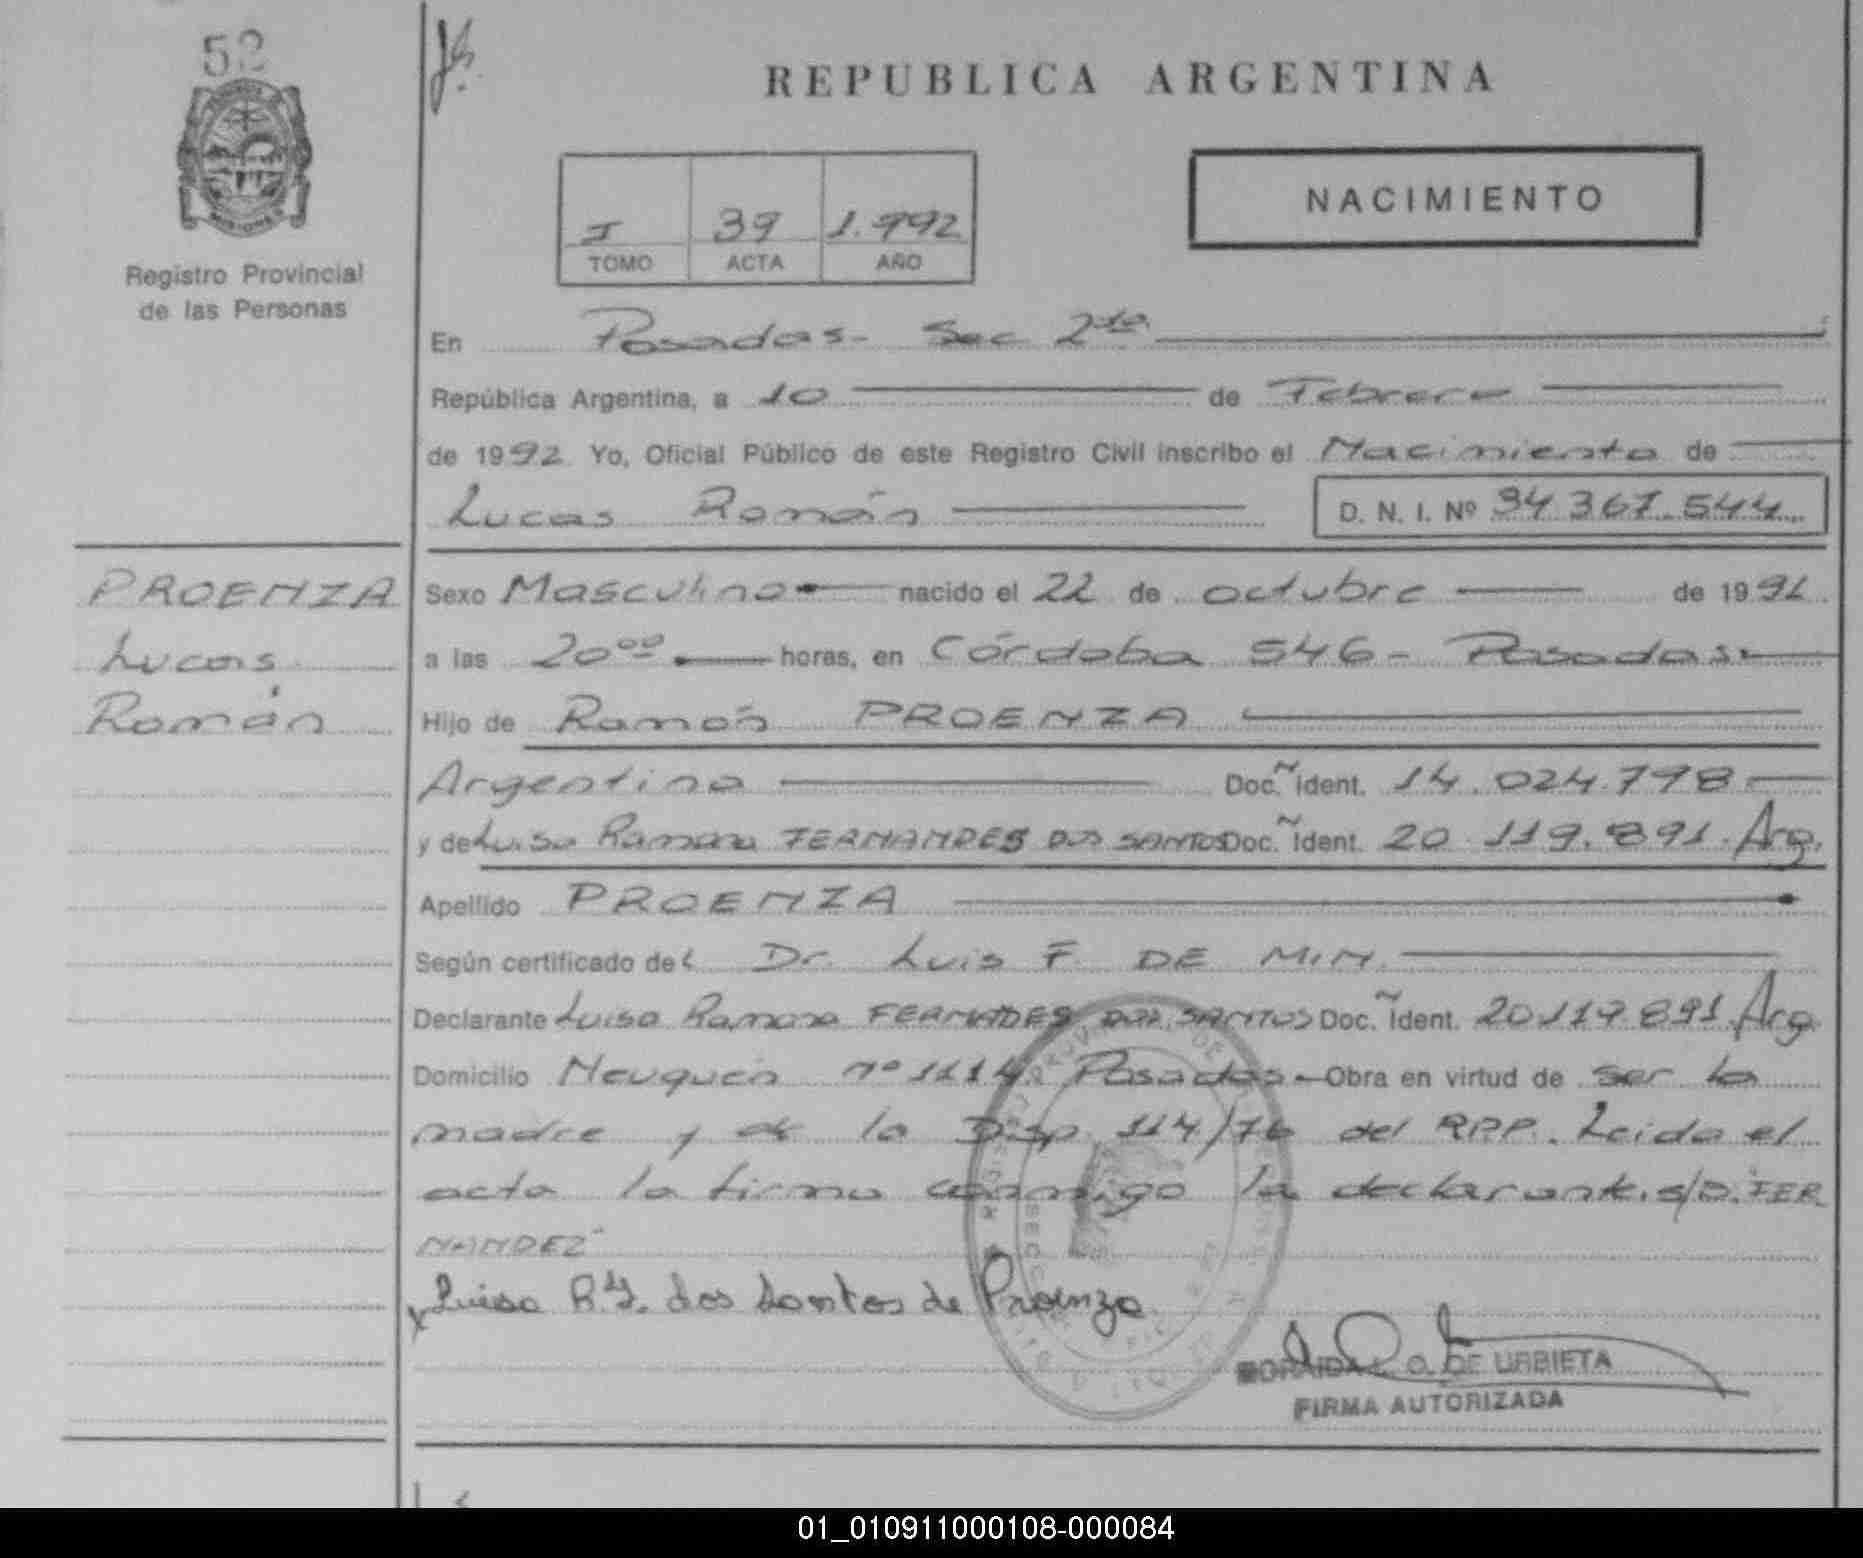 52
REPUBLICA ARGENTINA
I 39 1.992
TOMO ACTA AÑO
NACIMIENTO
Registro Provincial
de las Personas
En Posadas- Sec 2da
República Argentina, a 10 de Febrero
de 1992 Yo, Oficial Público de este Registro Civil inscribo el Nacimiento de
Lucas Román D. N. I. Nº 34 367.544
PROENZA
Lucas
Román
Sexo Masculino nacido el 22 de octubre de 1991
a las 20⁰⁰ horas, en Córdoba 546- Posadas
Hijo de Ramón PROENZA
Argentino Doc. Ident. 14.024.798
y de Luisa Ramona FERNANDES DOS SANTOS Doc. Ident. 20 119.891. Arg.
Apellido PROENZA
Según certificado del Dr. Luis F. DE MIN.
Declarante Luisa Ramona FERNADES DOS SANTOS Doc. Ident. 20.119.891 Arg.
Domicilio Neuquén nº 1114 Posadas-Obra en virtud de ser la
madre y de la Disp. 114/76 del RPP. Leida el
acta la firma conmigo la declarante. s/b. "FER
NANDEZ"
x Luisa R. F. dos Santos de Proenza
L. O. DE URBIETA
FIRMA AUTORIZADA
01_010911000108-000084